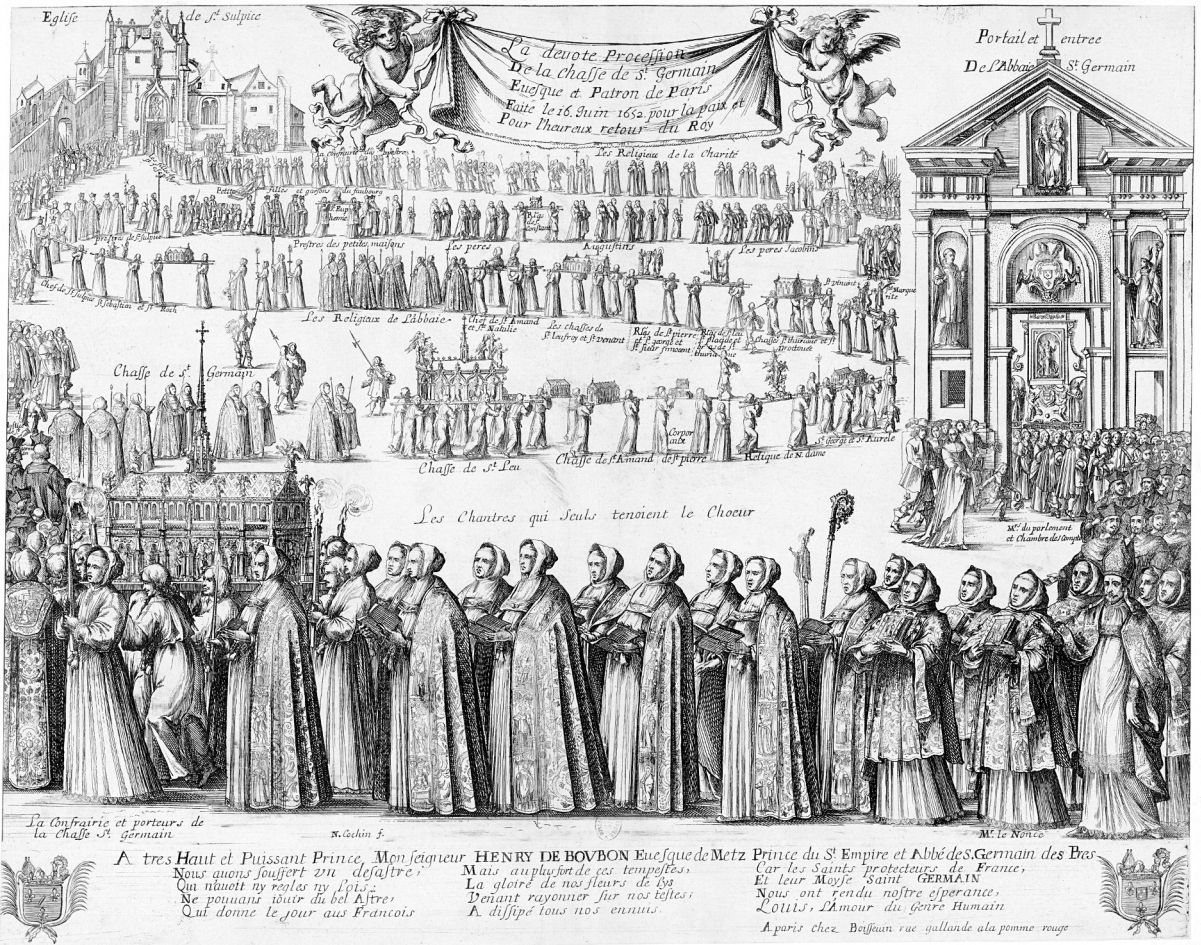 Eglise de St. Sulpice
La devote Procession
De la chasse de St. Germain
Evesque et Patron de Paris
Faite le 16. Juin 1652. pour la paix et
Pour l'heureux retour du Roy
Portail et entree
De L'Abbaie St. Germain
Les Religieux de la Charité
Petits filles et garsons du faubourg
Prestres de St. Sulpice
Prestres des petites maisons
Les peres Augustins
Les peres Jacobins
Chef de St. Sulpice St. Sebastien et St. Roch
Les Religiaux de L'abbaie
Chef de St. Amand
et Ste. Natalie
Les chasses de
St. Leufroy et St. venant
St. vincent
Ste. Marguerite
Chasse de St. Germain
Chasse de St. Leu
Chasse de St. Amand de St. pierre
Corporaulx
Relique de N. dame
St. George et St. Aurele
Les Chantres qui seuls tenoient le Choeur
Mrs. du parlement
et Chambre des Comptes
La Confrairie et porteurs de
la Chasse St. Germain
N. Cochin f.
Mr. le Nonce
A tres Haut et Puissant Prince, Monseigneur HENRY DE BOVBON Evesque de Metz Prince du St. Empire et Abbé de S. Germain des Pres
Nous avons souffert vn desastre,
Qui n'avoit ny regles ny Lois;
Ne pouvans iouir du bel Astre,
Qui donne le jour aus Francois
Mais au plus fort de ces tempestes,
La gloire de nos fleurs de Lys
Venant rayonner sur nos testes;
A dissipé tous nos ennuis.
Car les Saints protecteurs de France,
Et leur Moyse Saint GERMAIN
Nous ont rendu nostre esperance,
Louis, L'Amour du Genre Humain
A paris chez Boisseuin rue gallande a la pomme rouge